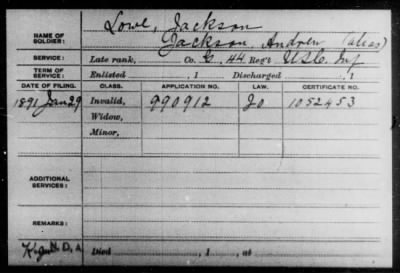 Lowe, Jackson
NAME OF SOLDIER: Jackson, Andrew (alias)
SERVICE: Late rank, Co. G, 44 Reg't U.S.C. Inf
TERM OF SERVICE: Enlisted , 1 Discharged , 1
DATE OF FILING. CLASS. APPLICATION NO. LAW. CERTIFICATE NO.
1891 Jan 29 Invalid, 990912 1052453
Widow,
Minor,
ADDITIONAL SERVICES:
REMARKS:
Died , 1 , at